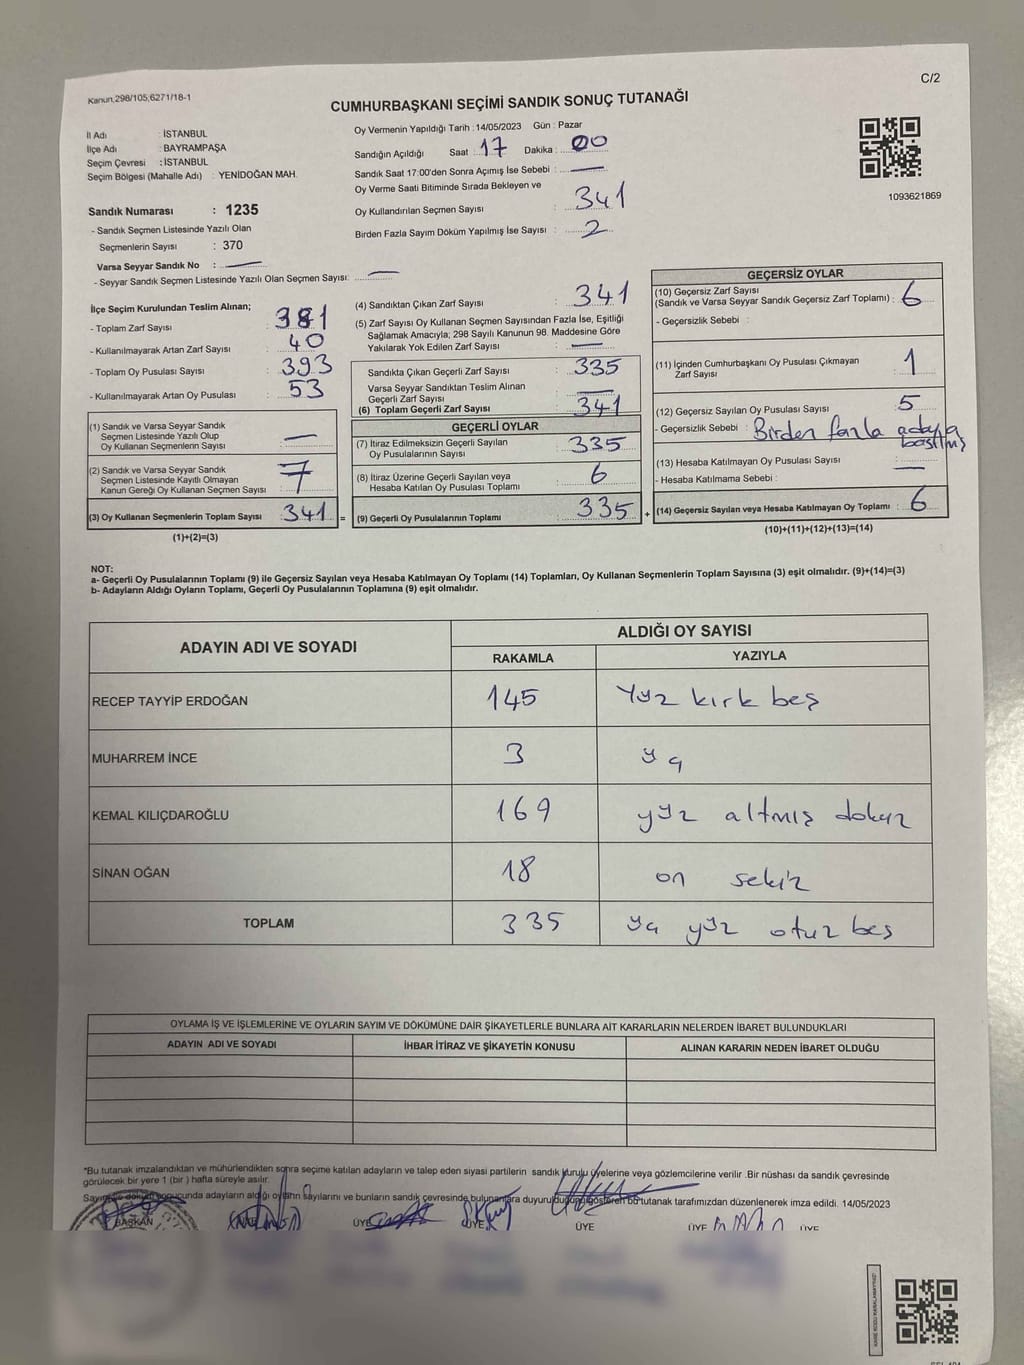 C/2
Kanun,298/105,6271/18-1
CUMHURBAŞKANI SEÇİMİ SANDIK SONUÇ TUTANAĞI
İl Adı : İSTANBUL
İlçe Adı : BAYRAMPAŞA
Seçim Çevresi : İSTANBUL
Seçim Bölgesi (Mahalle Adı) : YENİDOĞAN MAH.
Sandık Numarası : 1235
- Sandık Seçmen Listesinde Yazılı Olan
Seçmenlerin Sayısı : 370
Varsa Seyyar Sandık No :
- Seyyar Sandık Seçmen Listesinde Yazılı Olan Seçmen Sayısı:
Oy Vermenin Yapıldığı Tarih : 14/05/2023 Gün : Pazar
Sandığın Açıldığı Saat : 17 Dakika : 00
Sandık Saat 17:00'den Sonra Açımış İse Sebebi :
Oy Verme Saati Bitiminde Sırada Bekleyen ve
Oy Kullandırılan Seçmen Sayısı : 341
Birden Fazla Sayım Döküm Yapılmış İse Sayısı : 2
1093621869
İlçe Seçim Kurulundan Teslim Alınan;
- Toplam Zarf Sayısı : 381
- Kullanılmayarak Artan Zarf Sayısı : 40
- Toplam Oy Pusulası Sayısı : 393
- Kullanılmayarak Artan Oy Pusulası : 53
(1) Sandık ve Varsa Seyyar Sandık
Seçmen Listesinde Yazılı Olup
Oy Kullanan Seçmenlerin Sayısı :
(2) Sandık ve Varsa Seyyar Sandık
Seçmen Listesinde Kayıtlı Olmayan
Kanun Gereği Oy Kullanan Seçmen Sayısı : 7
(3) Oy Kullanan Seçmenlerin Toplam Sayısı : 341 =
(1)+(2)=(3)
(4) Sandıktan Çıkan Zarf Sayısı : 341
(5) Zarf Sayısı Oy Kullanan Seçmen Sayısından Fazla İse, Eşitliği
Sağlamak Amacıyla; 298 Sayılı Kanunun 98. Maddesine Göre
Yakılarak Yok Edilen Zarf Sayısı :
Sandıkta Çıkan Geçerli Zarf Sayısı : 335
Varsa Seyyar Sandıktan Teslim Alınan
Geçerli Zarf Sayısı :
(6) Toplam Geçerli Zarf Sayısı : 341
GEÇERLİ OYLAR
(7) İtiraz Edilmeksizin Geçerli Sayılan
Oy Pusulalarının Sayısı : 335
(8) İtiraz Üzerine Geçerli Sayılan veya
Hesaba Katılan Oy Pusulası Toplamı : 6
(9) Geçerli Oy Pusulalarının Toplamı : 335 +
GEÇERSİZ OYLAR
(10) Geçersiz Zarf Sayısı
(Sandık ve Varsa Seyyar Sandık Geçersiz Zarf Toplamı) : 6
- Geçersizlik Sebebi :
(11) İçinden Cumhurbaşkanı Oy Pusulası Çıkmayan
Zarf Sayısı : 1
(12) Geçersiz Sayılan Oy Pusulası Sayısı : 5
- Geçersizlik Sebebi : Birden fazla adaya
basılmış
(13) Hesaba Katılmayan Oy Pusulası Sayısı :
- Hesaba Katılmama Sebebi :
(14) Geçersiz Sayılan veya Hesaba Katılmayan Oy Toplamı : 6
(10)+(11)+(12)+(13)=(14)
NOT:
a- Geçerli Oy Pusulalarının Toplamı (9) ile Geçersiz Sayılan veya Hesaba Katılmayan Oy Toplamı (14) Toplamları, Oy Kullanan Seçmenlerin Toplam Sayısına (3) eşit olmalıdır. (9)+(14)=(3)
b- Adayların Aldığı Oyların Toplamı, Geçerli Oy Pusulalarının Toplamına (9) eşit olmalıdır.
ADAYIN ADI VE SOYADI ALDIĞI OY SAYISI
RAKAMLA YAZIYLA
RECEP TAYYİP ERDOĞAN 145 Yüz kırk beş
MUHARREM İNCE 3 üç
KEMAL KILIÇDAROĞLU 169 yüz altmış dokuz
SİNAN OĞAN 18 on sekiz
TOPLAM 335 üç yüz otuz beş
OYLAMA İŞ VE İŞLEMLERİNE VE OYLARIN SAYIM VE DÖKÜMÜNE DAİR ŞİKAYETLERLE BUNLARA AİT KARARLARIN NELERDEN İBARET BULUNDUKLARI
ADAYIN ADI VE SOYADI İHBAR İTİRAZ VE ŞİKAYETİN KONUSU ALINAN KARARIN NEDEN İBARET OLDUĞU
*Bu tutanak imzalandıktan ve mühürlendikten sonra seçime katılan adayların ve talep eden siyasi partilerin sandık kurulu üyelerine veya gözlemcilerine verilir .Bir nüshası da sandık çevresinde
görülecek bir yere 1 (bir ) hafta süreyle asılır.
Sayım ve döküm sonucunda adayların aldığı oyların sayılarını ve bunların sandık çevresinde bulunanlara duyurulduğunu gösteren bu tutanak tarafımızdan düzenlenerek imza edildi. 14/05/2023
BAŞKAN ÜYE ÜYE ÜYE ÜYE ÜYE